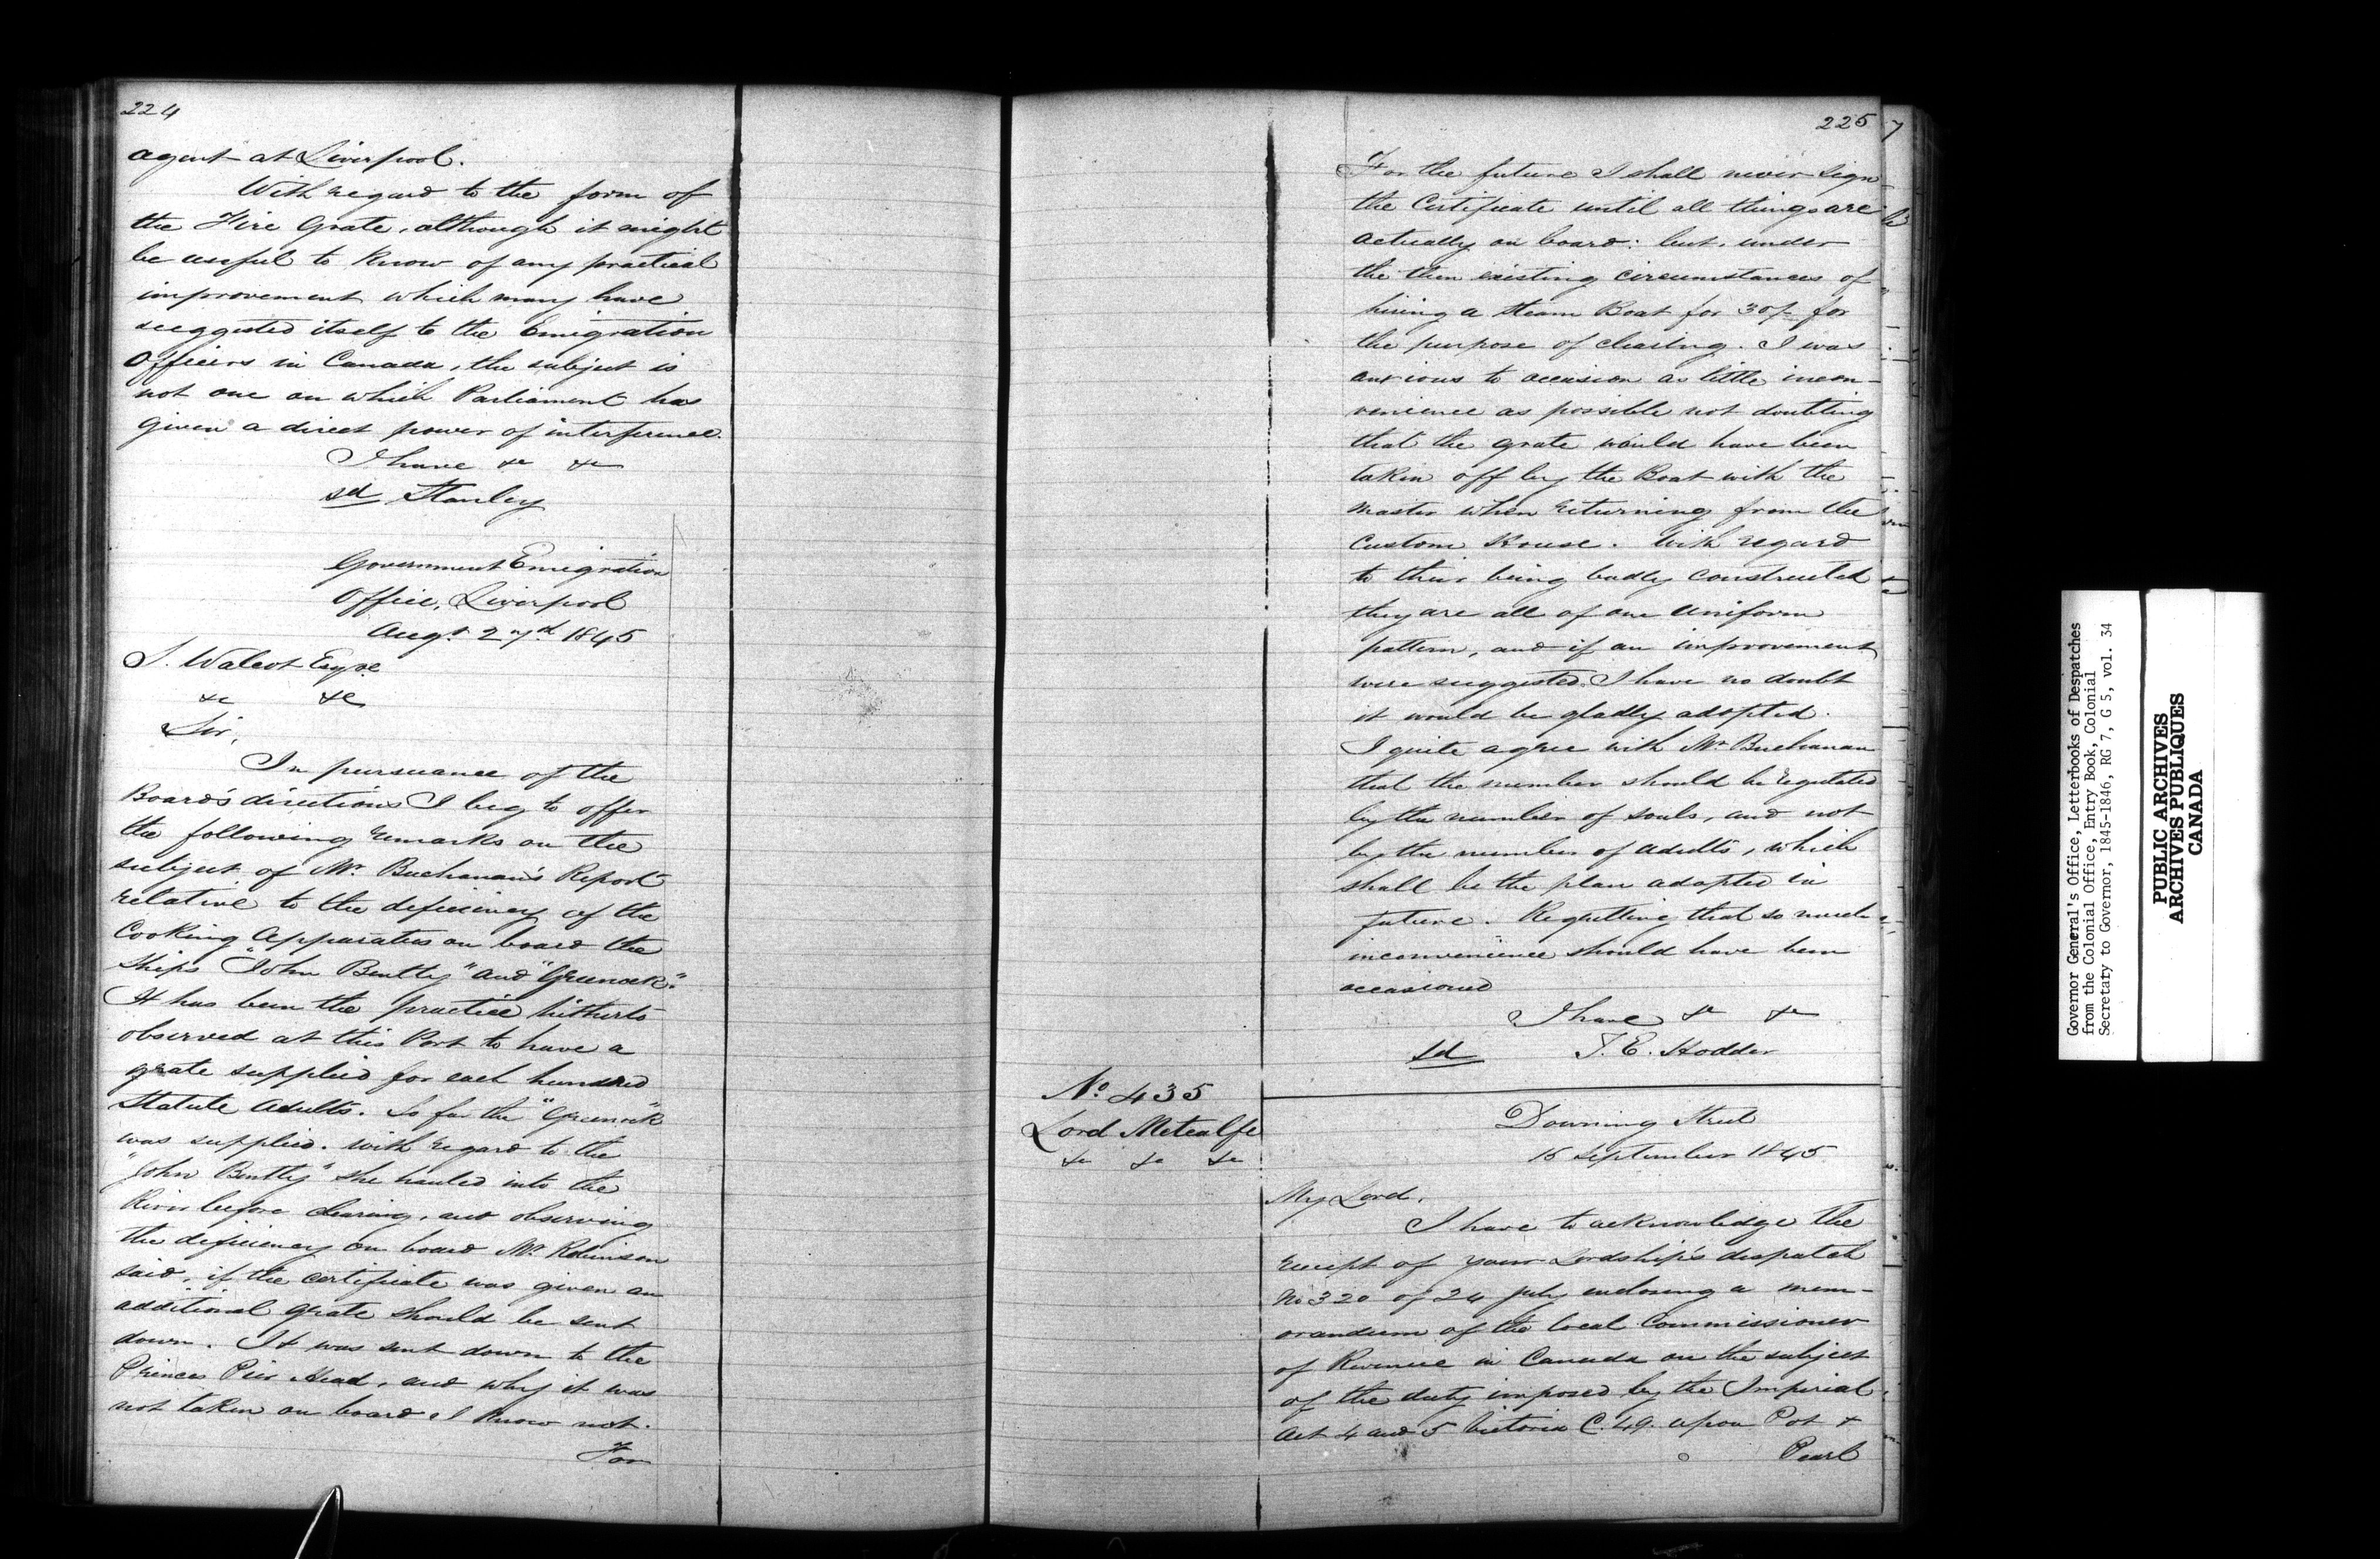 224
agent at Liverpool.
With regard to the form of
the Fire Grate, although it might
be useful to know of any practical
improvement which many have
suggested itself to the Emigration
Officers in Canada, the subject is
not one on which Parliament has
given a direct power of interference.
I have &c &c
sd Stanley
Government Emigration
Office, Liverpool
Augt 27th 1845
S. Walcot Esqre
&c &c
Sir,
In pursuance of the
Board's directions I beg to offer
the following remarks on the
subject of Mr Buchanan's Report
relative to the deficiency of the
Cooking Apparatus on board the
Ships "John Bently" and "Greenock".
It has been the practice hitherto
observed at this Port to have a
grate supplied for each hundred
Statute Adults. So far the "Greenock"
was supplied. With regard to the
"John Bently" she hauled into the
River before clearing, and observing
the deficiency on board Mr Robinson
said, if the certificate was given an
additional grate should be sent
down. It was sent down to the
Princes Pier Head, and why it was
not taken on board I know not.
For
225
For the future I shall never sign
the Certificate until all things are
actually on board: but, under
the then existing circumstances of
hiring a Steam Boat for 30/- for
the purpose of clearing. I was
anxious to occasion as little incon-
venience as possible not doubting
that the grate would have been
taken off by the Boat with the
Master when returning from the
Custom House. With regard
to their being badly constructed
they are all of one uniform
pattern, and if an improvement
were suggested. I have no doubt
it would be gladly adopted.
I quite agree with Mr Buchanan
that the number should be regulated
by the number of souls, and not
by the number of adults, which
shall be the plan adopted in
future. Regretting that so much
inconvenience should have been
occasioned
I have &c &c
sd T. E. Hodder
No 435
Lord Metcalfe
&c &c &c
Downing Street
15 September 1845
My Lord,
I have to acknowledge the
receipt of your Lordship's despatch
No 320 of 24 July enclosing a mem-
orandum of the local Commissioner
of Revenue in Canada on the subject
of the duty imposed by the Imperial
Act 4 and 5 Victoria C. 49. upon Pot &
Pearl
Governor General's Office, Letterbooks of Despatches
from the Colonial Office, Entry Book, Colonial
Secretary to Governor, 1845-1846, RG 7, G 5, vol. 34
PUBLIC ARCHIVES
ARCHIVES PUBLIQUES
CANADA